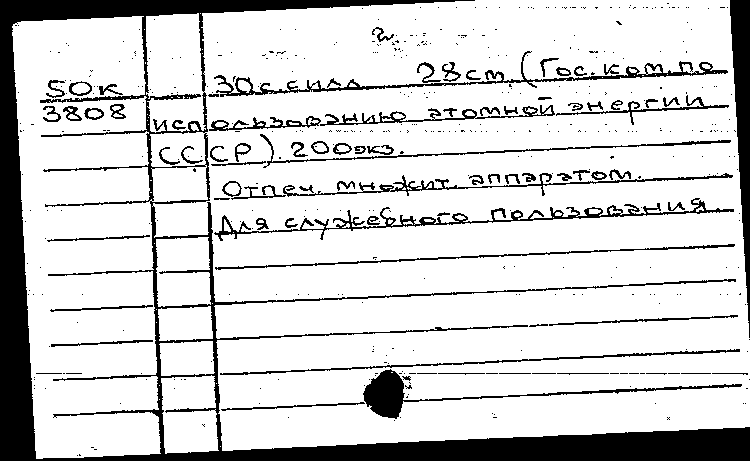 2
50к 30с. с илл. 28 см. (Гос. ком. по
3808 использованию атомной энергии
СССР). 200 экз.
Отпеч. множит. аппаратом.
Для служебного пользования.